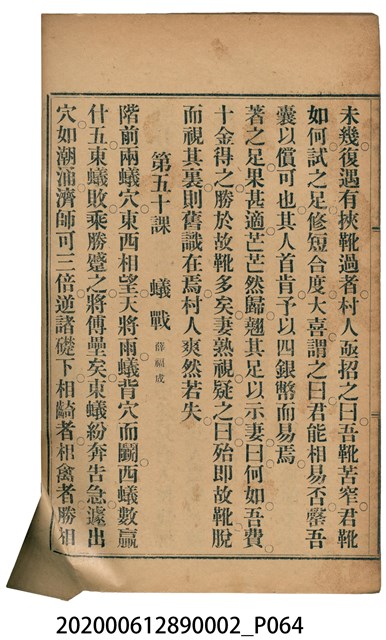 未幾復遇有挾靴過者村人亟招之曰吾靴苦窄君靴
如何試之足修短合度大喜謂之曰君能相易否罄吾
囊以償可也其人首肯予以四銀幣而易焉
著之足果甚適芒芒然歸翹其足以示妻曰何如吾費
十金得之勝於故靴多矣妻熟視疑之曰殆即故靴脫
而視其裏則舊識在焉村人爽然若失
第五十課 蟻戰 薛福成
階前兩蟻穴東西相望天將雨蟻背穴而鬭西蟻數贏
什五東蟻敗乘勝蹙之將傅壘矣東蟻紛奔告急遽出
穴如潮涌濟師可三倍逆諸礎下相齮者相禽者勝相
202000612890002_P064